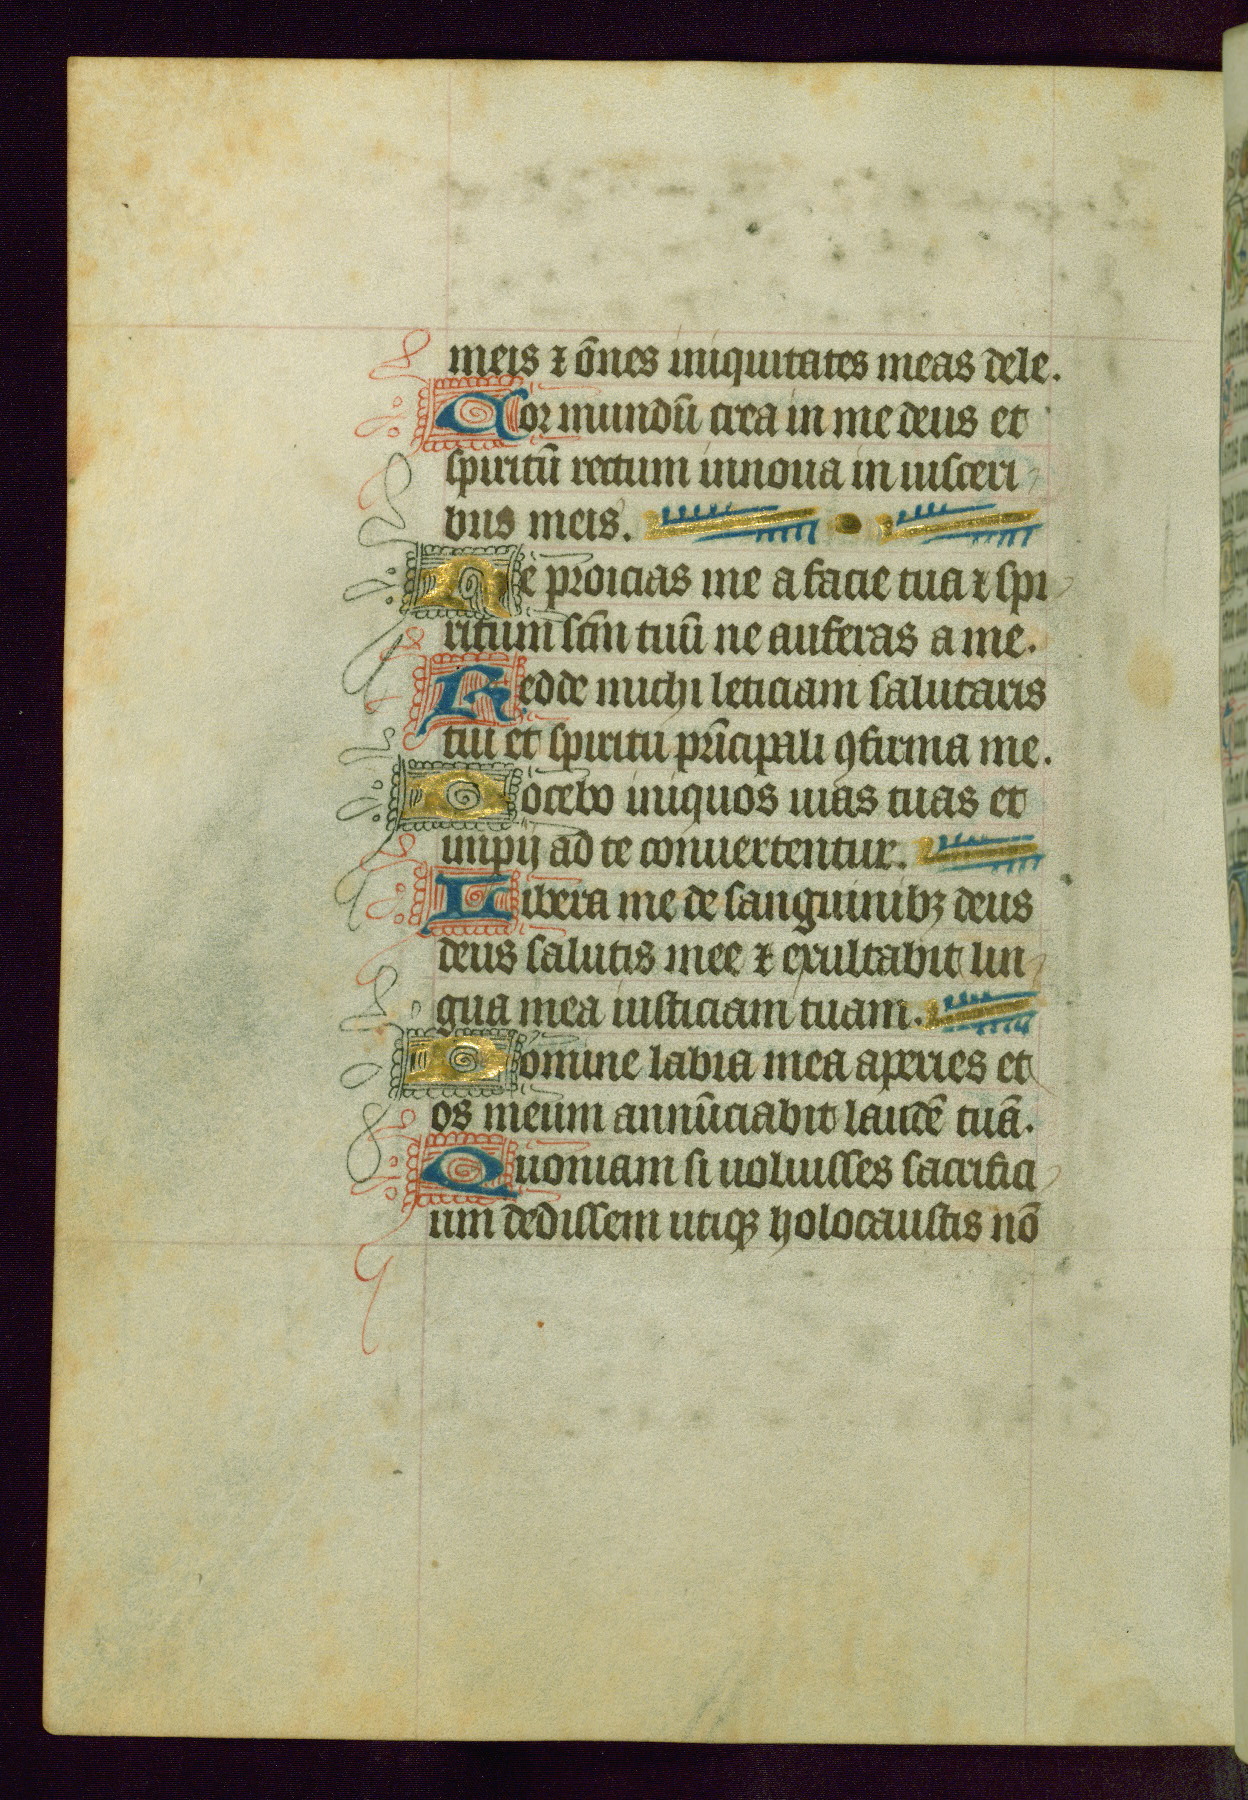 meis ⁊ om̄es iniquitates meas dele.
Cor mundū crea in me deus et
spiritū rectum innoua in uisceri
bus meis.
Ne proicias me a facie tua ⁊ spi
ritum sc̄m tuū ne auferas a me.
Redde michi leticiam salutaris
tui et spiritu prīcipali ꝯfirma me.
Docebo iniquos uias tuas et
impij ad te conuertentur.
Libera me de sanguinibꝫ deus
deus salutis mee ⁊ exultabit lin
gua mea iusticiam tuam.
Domine labia mea aperies et
os meum annūciabit laudē tuā.
Quoniam si uoluisses sacrifici
um dedissem utiqꝫ holocaustis nō